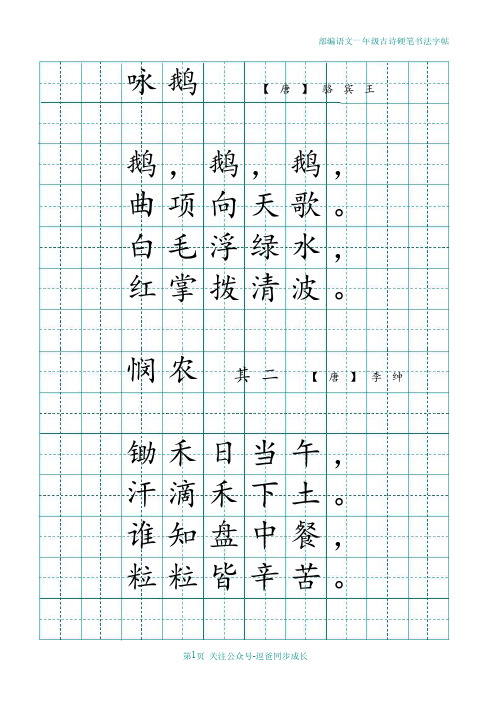 部编语文一年级古诗硬笔书法字帖
咏鹅 【唐】骆宾王
鹅，鹅，鹅，
曲项向天歌。
白毛浮绿水，
红掌拨清波。
悯农 其二 【唐】李绅
锄禾日当午，
汗滴禾下土。
谁知盘中餐，
粒粒皆辛苦。
第1页 关注公众号-逗爸同步成长